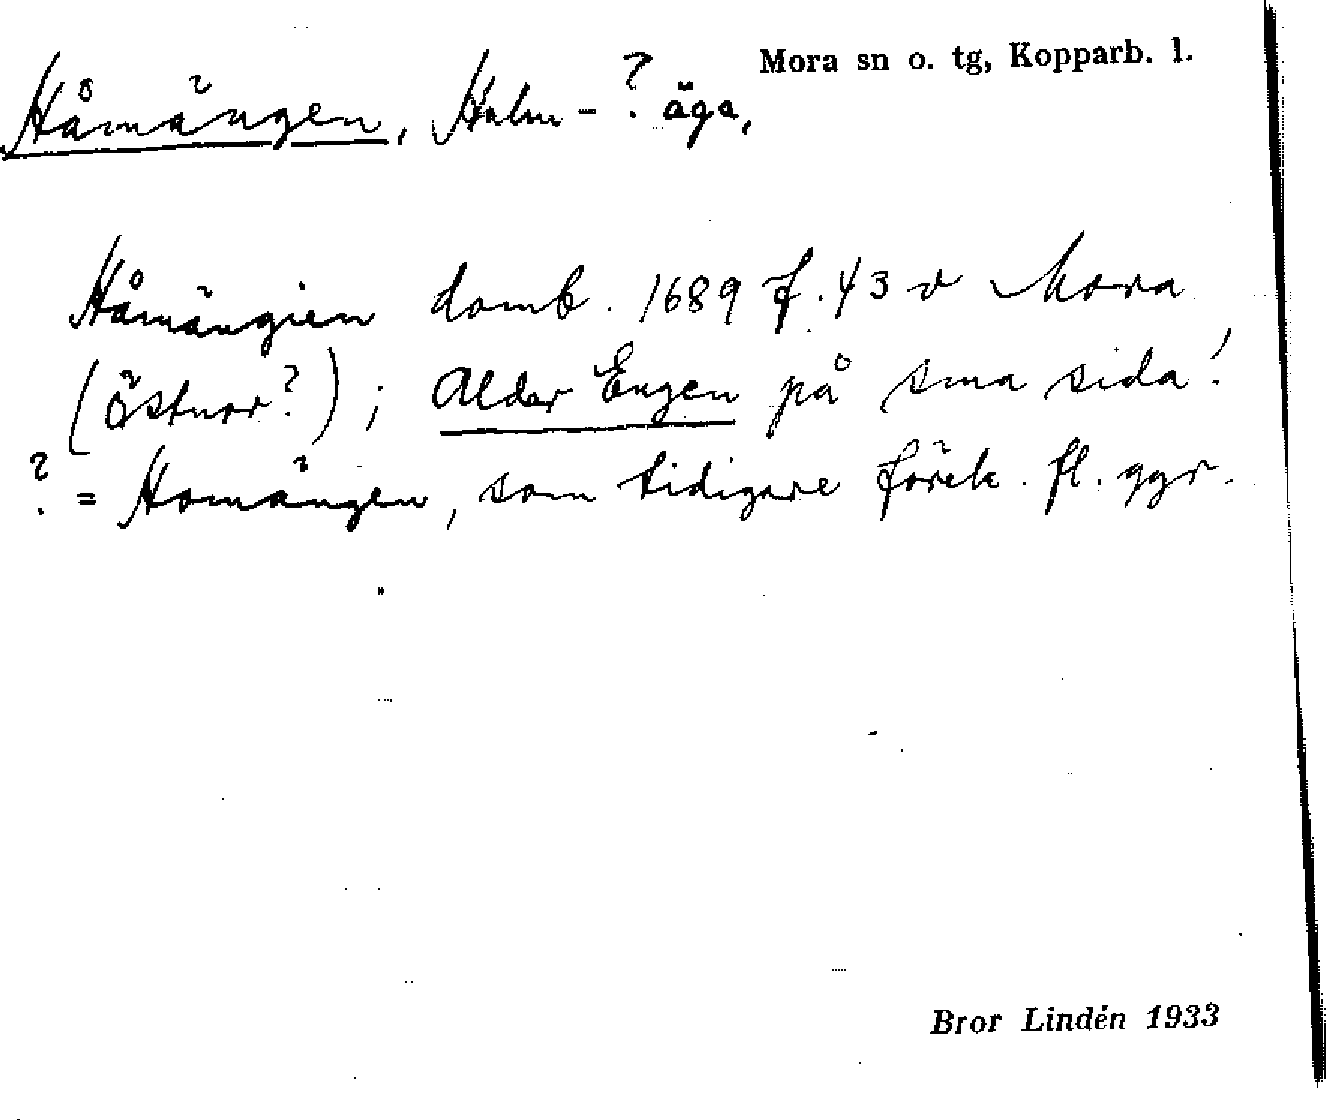 Mora sn o. tg, Kopparb. l.
Håmängen, Holm - ? äga,
Håmängien domb. 1689 f. 43 v Mora
(Östnor?); Alder Engen på sma sida!
? = Homängen, som tidigare förek. fl. ggr.
Bror Lindén 1933